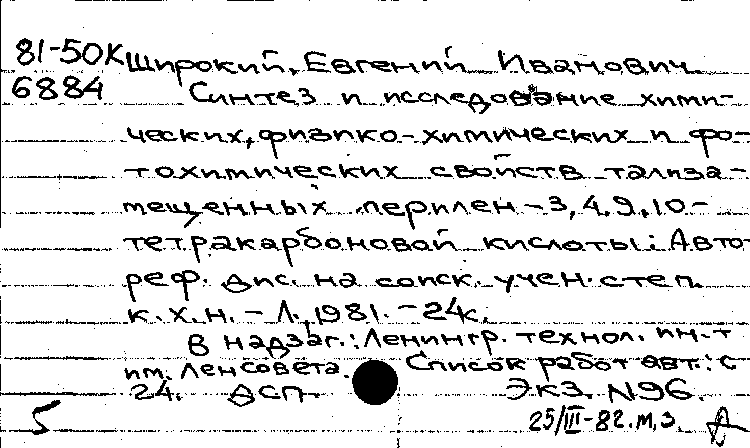 81-50К Широкий, Евгений Иванович
6884 Синтез и исследование хими-
ческих, физико-химических и фо-
тохимических свойств тализа-
мещенных перилен-3,4,9,10-
тетракарбоновой кислоты: Авто-
реф. дис. на соиск. учен. степ.
к.х.н. - Л., 1981. - 24с.
В надзаг.: Ленингр. технол. ин-т
им. Ленсовета. Список работ авт.: с
24. ДСП. Экз. N96.
5 25/III-82. м.з.